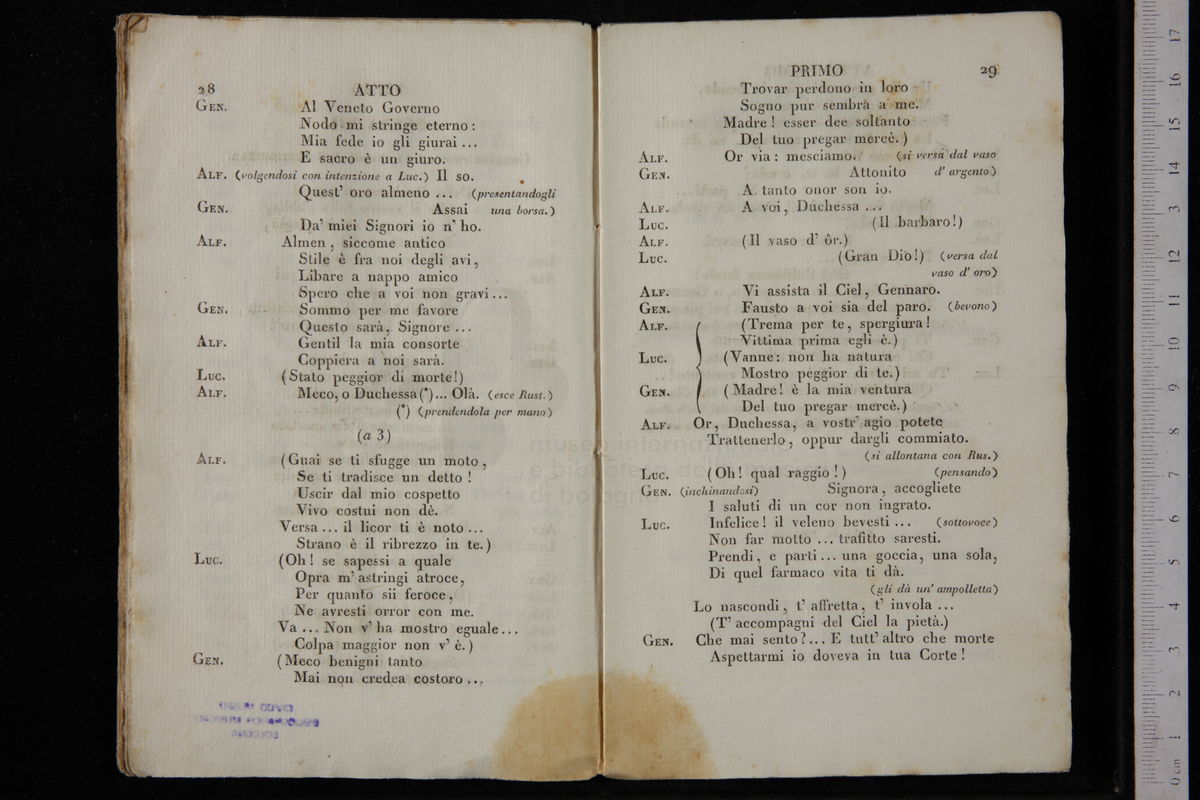 28 ATTO
GEN. Al Veneto Governo
Nodo mi stringe eterno :
Mia fede io gli giurai ...
E sacro è un giuro.
ALF. (volgendosi con intenzione a Luc.) Il so.
Quest' oro almeno ... (presentandogli
GEN. Assai una borsa.)
Da' miei Signori io n' ho.
ALF. Almen , siccome antico
Stile è fra noi degli avi,
Libare a nappo amico
Spero che a voi non gravi...
GEN. Sommo per me favore
Questo sarà, Signore ...
ALF. Gentil la mia consorte
Coppiera a noi sarà.
LUC. (Stato peggior di morte!)
ALF. Meco, o Duchessa(*)... Olà. (esce Rust.)
(*) (prendendola per mano)
(a 3)
ALF. (Guai se ti sfugge un moto ,
Se ti tradisce un detto !
Uscir dal mio cospetto
Vivo costui non dè.
Versa ... il licor ti è noto ...
Strano è il ribrezzo in te.)
LUC. (Oh ! se sapessi a quale
Opra m' astringi atroce,
Per quanto sii feroce,
Ne avresti orror con me.
Va ... Non v' ha mostro eguale...
Colpa maggior non v' è.)
GEN. (Meco benigni tanto
Mai non credea costoro ...
PRIMO 29
Trovar perdono in loro
Sogno pur sembra a me.
Madre ! esser dee soltanto
Del tuo pregar mercè. )
ALF. Or via : mesciamo. (si versa dal vaso
GEN. Attonito d' argento)
A tanto onor son io.
ALF. A voi, Duchessa ...
LUC. (Il barbaro!)
ALF. (Il vaso d' ôr.)
LUC. (Gran Dio!) (versa dal
vaso d' oro)
ALF. Vi assista il Ciel, Gennaro.
GEN. Fausto a voi sia del paro. (bevono)
ALF. (Trema per te, spergiura !
Vittima prima egli è.)
LUC. (Vanne: non ha natura
Mostro peggior di te.)
GEN. (Madre! è la mia ventura
Del tuo pregar mercè.)
ALF. Or, Duchessa, a vostr' agio potete
Trattenerlo, oppur dargli commiato.
(si allontana con Rus.)
LUC. (Oh! qual raggio !) (pensando)
GEN. (inchinandosi) Signora, accogliete
I saluti di un cor non ingrato.
LUC. Infelice ! il veleno bevesti ... (sottovoce)
Non far motto ... trafitto saresti.
Prendi, e parti... una goccia, una sola,
Di quel farmaco vita ti dà.
(gli dà un' ampolletta)
Lo nascondi, t' affretta, t' invola ...
(T' accompagni del Ciel la pietà.)
GEN. Che mai sento?... E tutt' altro che morte
Aspettarmi io doveva in tua Corte !